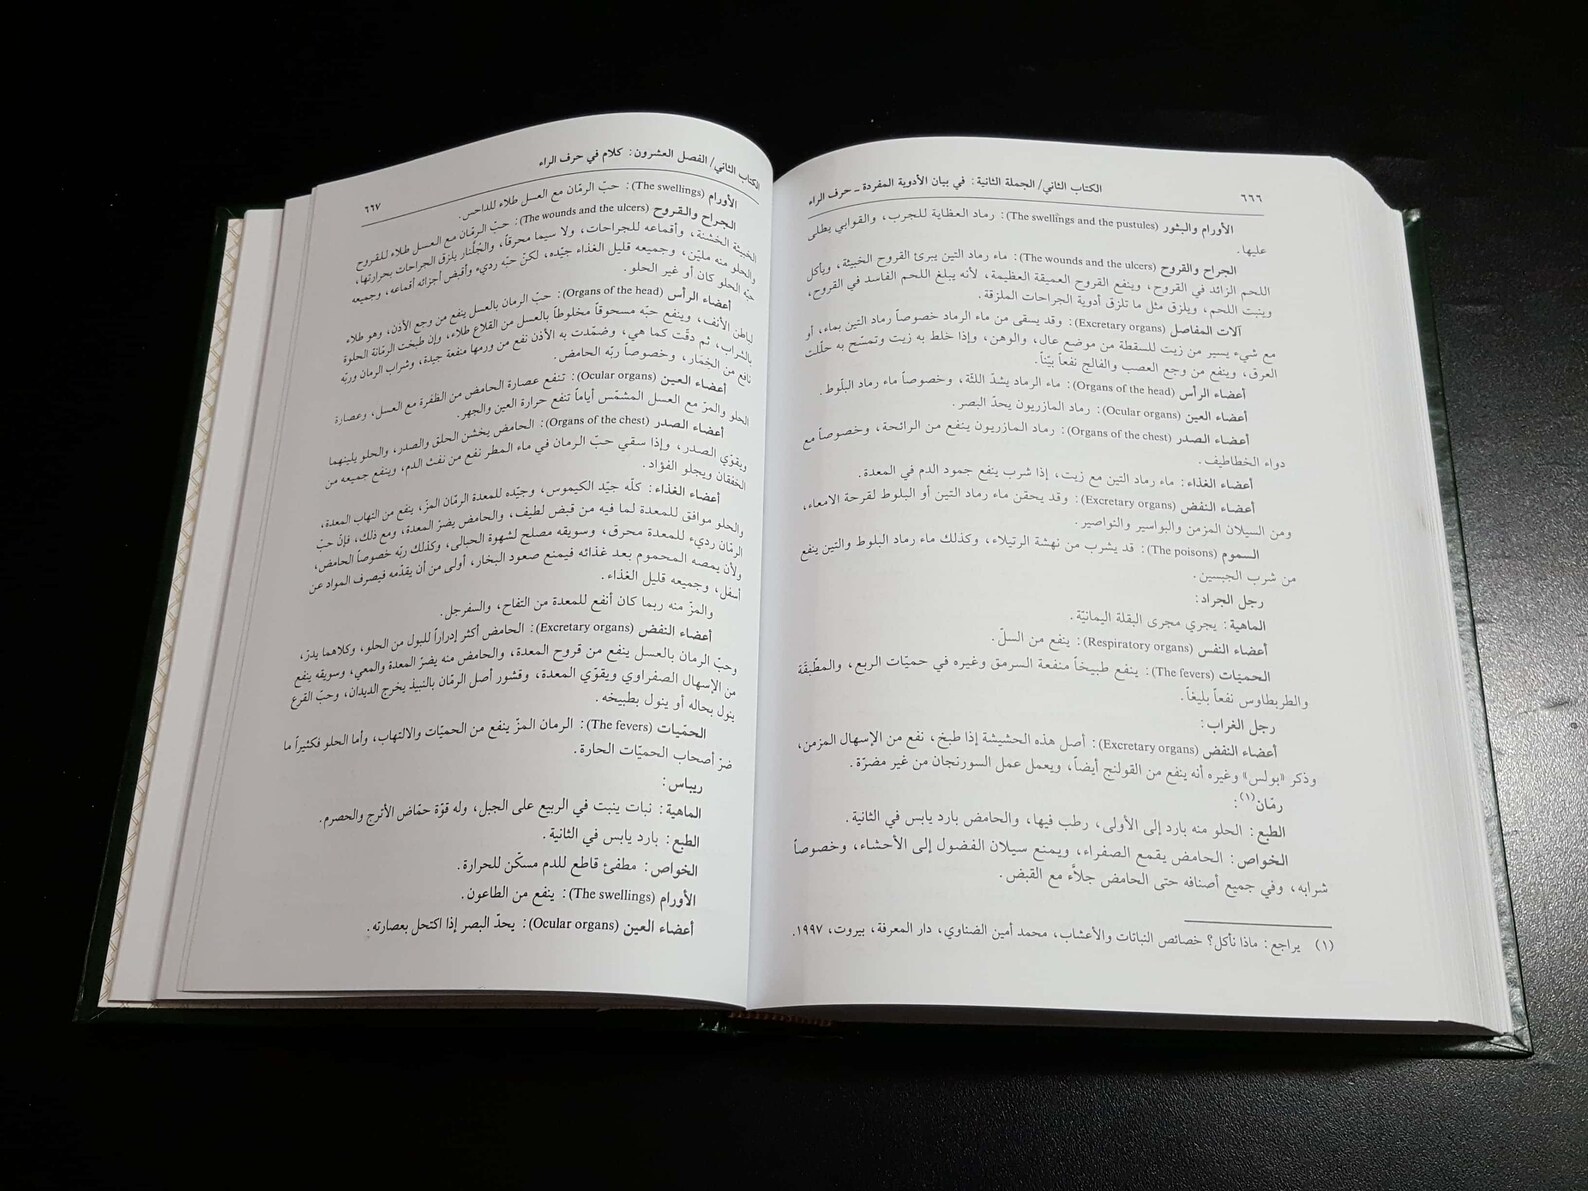 ٦٦٦
الكتاب الثاني/ الجملة الثانية: في بيان الأدوية المفردة ـ حرف الراء
الأورام والبثور (The swellings and the pustules): رماد العظاية للجرب، والقوابي يطلى
عليها.
الجراح والقروح (The wounds and the ulcers): ماء رماد التين يبرئ القروح الخبيثة، ويأكل
اللحم الزائد في القروح، وينفع القروح العميقة العظيمة، لأنه يبلغ اللحم الفاسد في القروح،
وينبت اللحم، ويلزق مثل ما تلزق أدوية الجراحات الملزقة.
آلات المفاصل (Excretary organs): وقد يسقى من ماء الرماد خصوصاً رماد التين بماء، أو
مع شيء يسير من زيت للسقطة من موضع عال، والوهن، وإذا خلط به زيت وتمسّح به حلّلت
العرق، وينفع من وجع العصب والفالج نفعاً بيّناً.
أعضاء الرأس (Organs of the head): ماء الرماد يشدّ اللثة، وخصوصاً ماء رماد البلّوط.
أعضاء العين (Ocular organs): رماد المازريون يحدّ البصر.
أعضاء الصدر (Organs of the chest): رماد المازريون ينفع من الرائحة، وخصوصاً مع
دواء الخطاطيف.
أعضاء الغذاء: ماء رماد التين مع زيت، إذا شرب ينفع جمود الدم في المعدة.
أعضاء النفض (Excretary organs): وقد يحقن ماء رماد التين أو البلوط لقرحة الامعاء،
ومن السيلان المزمن والبواسير والنواصير.
السموم (The poisons): قد يشرب من نهشة الرتيلاء، وكذلك ماء رماد البلوط والتين ينفع
من شرب الجبسين.
رجل الجراد:
الماهية: يجري مجرى البقلة اليمانيّة.
أعضاء النفس (Respiratory organs): ينفع من السلّ.
الحميّات (The fevers): ينفع طبيخاً منفعة السرمق وغيره في حميّات الربع، والمطّبقة
والطربطاوس نفعاً بليغاً.
رجل الغراب:
أعضاء النفض (Excretary organs): أصل هذه الحشيشة إذا طبخ، نفع من الإسهال المزمن،
وذكر «بولس» وغيره أنه ينفع من القولنج أيضاً، ويعمل عمل السورنجان من غير مضرّة.
رمّان(١):
الطبع: الحلو منه بارد إلى الأولى، رطب فيها، والحامض بارد يابس في الثانية.
الخواص: الحامض يقمع الصفراء، ويمنع سيلان الفضول إلى الأحشاء، وخصوصاً
شرابه، وفي جميع أصنافه حتى الحامض جلاّء مع القبض.
(١) يراجع: ماذا نأكل؟ خصائص النباتات والأعشاب، محمد أمين الضناوي، دار المعرفة، بيروت، ١٩٩٧.
الكتاب الثاني/ الفصل العشرون: كلام في حرف الراء
٦٦٧
الأورام (The swellings): حبّ الرمّان مع العسل طلاء للداحس.
الجراح والقروح (The wounds and the ulcers): حبّ الرمّان مع العسل طلاء للقروح
الخبيثة الخشنة، وأقماعه للجراحات، ولا سيما محرقاً، والجُلّنار يلزق الجراحات بحرارتها،
والحلو منه مليّن، وجميعه قليل الغذاء جيّده، لكنّ حبّه رديء وأقبض أجزائه أقماعه، وجميعه
حبّه الحلو كان أو غير الحلو.
أعضاء الرأس (Organs of the head): حبّ الرمان بالعسل ينفع من وجع الأذن، وهو طلاء
لباطن الأنف، وينفع حبّه مسحوقاً مخلوطاً بالعسل من القلاع طلاء، وإن طبخت الرمّانة الحلوة
بالشراب، ثم دقّت كما هي، وضمّدت به الأذن نفع من ورمها منفعة جيدة، وشراب الرمان وربّه
نافع من الخمّار، وخصوصاً ربّه الحامض.
أعضاء العين (Ocular organs): تنفع عصارة الحامض من الظفرة مع العسل، وعصارة
الحلو والمزّ مع العسل المشمّس أياماً تنفع حرارة العين والجهر.
أعضاء الصدر (Organs of the chest): الحامض يخشن الحلق والصدر، والحلو يلينهما
ويقوّي الصدر، وإذا سقي حبّ الرمان في ماء المطر نفع من نفث الدم، وينفع جميعه من
الخفقان ويجلو الفؤاد.
أعضاء الغذاء: كلّه جيّد الكيموس، وجيّده للمعدة الرمّان المزّ، ينفع من التهاب المعدة،
والحلو موافق للمعدة لما فيه من قبض لطيف، والحامض يضرّ المعدة، ومع ذلك، فإنّ حبّ
الرمّان رديء للمعدة محرق، وسويقه مصلح لشهوة الحبالى، وكذلك ربّه خصوصاً الحامض،
ولأن يمصه المحموم بعد غذائه فيمنع صعود البخار، أولى من أن يقدّمه فيصرف المواد عن
أسفل، وجميعه قليل الغذاء.
والمزّ منه ربما كان أنفع للمعدة من التفاح، والسفرجل.
أعضاء النفض (Excretary organs): الحامض أكثر إدراراً للبول من الحلو، وكلاهما يدرّ،
وحبّ الرمان بالعسل ينفع من قروح المعدة، والحامض منه يضرّ المعدة والمعي، وسويقه ينفع
من الإسهال الصفراوي ويقوّي المعدة، وقشور أصل الرمّان بالنبيذ يخرج الديدان، وحبّ القرع
ينول بحاله أو ينول بطبيخه.
الحمّيات (The fevers): الرمان المزّ ينفع من الحميّات والالتهاب، وأما الحلو فكثيراً ما
ضرّ أصحاب الحميّات الحارة.
ريباس:
الماهية: نبات ينبت في الربيع على الجبل، وله قوّة حمّاض الأترج والحصرم.
الطبع: بارد يابس في الثانية.
الخواص: مطفئ قاطع للدم مسكّن للحرارة.
الأورام (The swellings): ينفع من الطاعون.
أعضاء العين (Ocular organs): يحدّ البصر إذا اكتحل بعصارته.